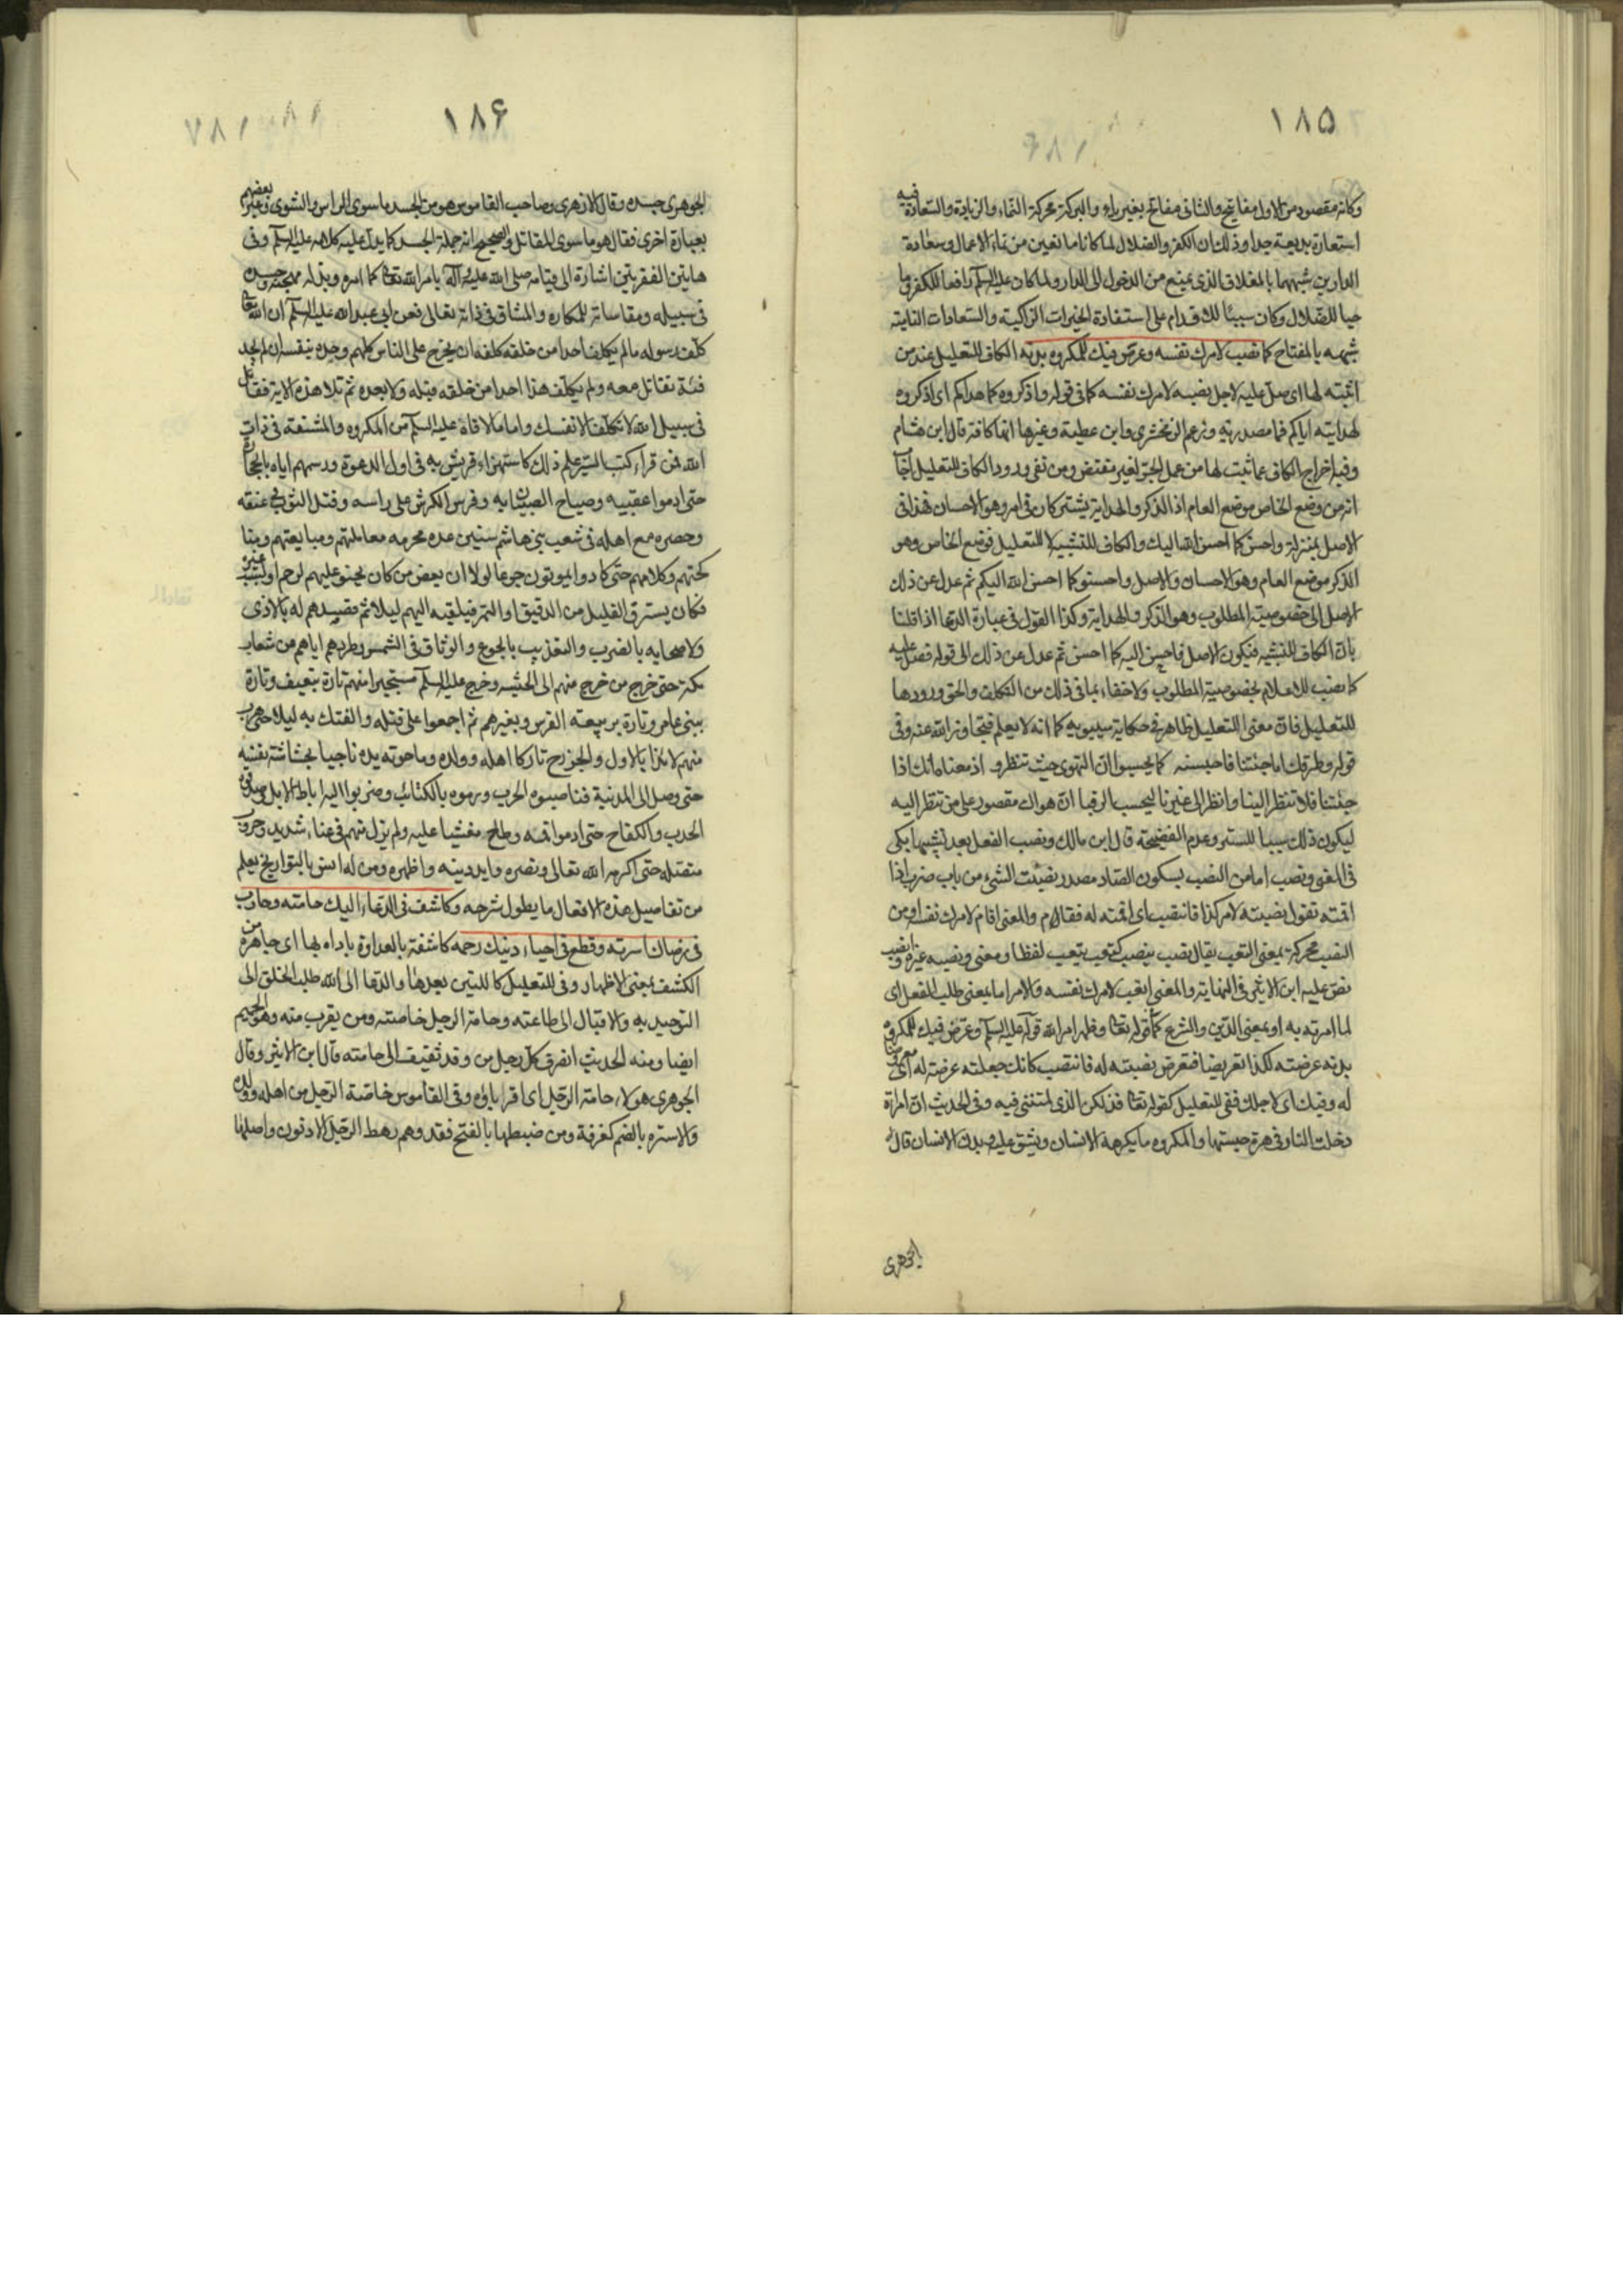 ١٨٥
وكانه مقصود من الاول مفاتيح والثانى مفاتح بغير ياء والبركة محركة النماء والزيادة والسعادة وفيه
استعارة بديعة جدا وذلك ان الكفر والضلال لما كانا مانعين من نماء الاعمال وسعادة
الدارين شبههما بالمغلاق الذى يمنع من الدخول الى الدار ولما كان عليه السلم رافعا للكفر
حيا للضلال وكان سببا للاقدام على استفادة الخيرات الزاكية والسعادات
شبهه بالمفتاح كما نصب لامرك نفسه وعرض فيك للمكروه بدنه الكاف للتعليل عند من
اثبته لها اى صل عليه لاجل نصبه لامرك نفسه كما فى قوله واذكروه كما هداكم اى اذكروه
لهدايته اياكم فما مصدرية وزعم الزمخشرى وابن عطية وغيرها انها كافة قال ابن هشام
وفيه اخراج الكاف عما ثبت لها من عمل الجر لغير مقتض ومن نفى ورود الكاف للتعليل اجاب
انه من وضع الخاص موضع العام اذ الذكر والهداية يشتركان فى امر وهو الاحسان فهذا فى
الاصل بمنزلة واحسن كما احسن الله اليك والكاف للتشبيه لا للتعليل فوضع الخاص وهو
الذكر موضع العام وهو الاحسان والاصل واحسنوا كما احسن الله اليكم ثم عدل عن ذلك
الاصل الى خصوصية المطلوب وهو الذكر والهداية وكذا القول فى عبارة الدعا اذا قلنا
بان الكاف للتشبيه فيكون الاصل فاحسن اليه كما احسن ثم عدل عن ذلك الى قوله فصل عليه
كما نصب للاعلام بخصوصية المطلوب ولا خفاء بما فى ذلك من التكلف والحق ورودها
للتعليل فان معنى التعليل ظاهر فى حكاية سيبويه كما انه لا يعلم فتجاوز الله عنه وفى
قوله وطرفك اما جئتنا فاحبسنه كما يحسبوا ان الهوى حيث تنظر اذ معنا
جئتنا فلا تنظر الينا وانظر الى غيرنا ليحسب الرقبا ان هواك مقصور على من تنظر اليه
ليكون ذلك سببا للستر وعدم الفضيحة قال ابن مالك ونصب الفعل بعد تشبيها بكى
فى المعنى ونصب اما من النصب بسكون الصاد مصدر نصبت الشىء من باب ضرب اذا
اقمته تقول نصبته لامر كذا فانتصب اى اقمته له فقام والمعنى اقام لامرك نفسه او من
النصب محركة بمعنى التعب يقال نصب ينصب كتعب يتعب لفظا ومعنى ونصبه غيره
نص عليه ابن الاثير فى النهاية والمعنى اتعب لامرك نفسه والامر اما بمعنى طلب الفعل اى
لما امرته به او بمعنى الدين والشرع كما فى قوله تعالى وظهر امر الله قوله عليه السلم وعرض فيك للمكروه
بدنه عرضته لكذا تعريضا فتعرض نصبته له فانتصب كانك جعلته عرضة له اى
له وفيك اى لاجلك ففى للتعليل كقوله تعالى فذلكن الذى لمتننى فيه وفى الحديث ان امراة
دخلت النار فى هرة حبستها والمكروه ما يكرهه الانسان ويشق عليه وبدن الانسان قال
الجوهرى
١٨۶
الجوهرى جسده وقال الازهرى وصاحب القاموس هو من الجسد ما سوى الراس والشوى وعبر بعضهم
بعبارة اخرى فقال هو ما سوى المقاتل والصحيح انه جملة الجسد كما يدل عليه كلامه عليه السلم وفى
هاتين الفقرتين اشارة الى قيامه صلى الله عليه وآله بامر الله تعالى كما امره وبذله مهجته وجسده
فى سبيله ومقاساته للمكاره والمشاق فى ذاته تعالى فعن ابى عبد الله عليه السلم ان الله تعالى
كلف رسوله ما لم يكلف احدا من خلقه كلفه ان يخرج على الناس كلهم وحده بنفسه ان لم يجد
فئة تقاتل معه ولم يكلف هذا احدا من خلقه قبله ولا بعده ثم تلا هذه الاية فقاتل
فى سبيل الله لا تكلف الا نفسك واما ما لاقاه عليه السلم من المكروه والمشقة فى ذات
الله فمن قرا كتب السير علم ذلك كاستهزاء قريش به فى اول الدعوة ورميهم اياه بالحجارة
حتى ادموا عقبيه وصياح الصبيان به وفرس الكرش على راسه وفتل الثوب فى عنقه
وحصره مع اهله فى شعب بنى هاشم سنين عدة محرمه معاملتهم ومبايعتهم ومنا
كحتهم وكلامهم حتى كادوا يموتون جوعا لولا ان بعض من كان يحنو عليهم لرحم او لسبب غيره
فكان يسترق القليل من الدقيق او التمر فيلقيه اليهم ليلا ثم قصدهم له بالاذى
ولاصحابه بالضرب والتعذيب بالجوع والوثاق فى الشمس وطردهم اياهم من شعاب
مكة حتى خرج من خرج منهم الى الحبشة وخرج عليه السلم مستجيرا منهم تارة بثقيف وتارة
ببنى عامر وتارة بربيعة الفرس وبغيرهم ثم اجمعوا على قتله والفتك به ليلا حتى هرب
منهم لائذا بالاوس والخزرج تاركا اهله وولده وما حوته يده ناجيا بحشاشة نفسه
حتى وصل الى المدينة فناصبوه الحرب ورموه بالكتائب وضربوا اليه اباط الابل
الحرب والكفاح حتى ادموا فمه وطاح مغشيا عليه ولم يزل منهم فى عناء شديد وحروب
متصلة حتى اكرمه الله تعالى ونصره وايد دينه واظهره ومن له انس بالتواريخ يعلم
من تفاصيل هذه الافعال ما يطول شرحه وكاشف فى الدعاء اليك حامته وحارب
فى رضاك اسرته وقطع فى احياء دينك رحمه كاشفه بالعداوة باداه بها اى جاهره من
الكشف بمعنى الاظهار وفى للتعليل كاللتين بعدها والدعا الى الله طلب الخلق الى
التوحيد به والاقبال الى طاعته وحامة الرجل خاصته ومن يقرب منه وهو الحميم
ايضا ومنه الحديث انصرف كل رجل من وفد ثقيف الى حامته قال ابن الاثير وقال
الجوهرى هولاء حامة الرجل اى اقرباؤه وفى القاموس خاصة الرجل من اهله وولده
والاسره بالضم كغرفة ومن ضبطها بالفتح فقد وهم رهط الرجل الادنون واصلها